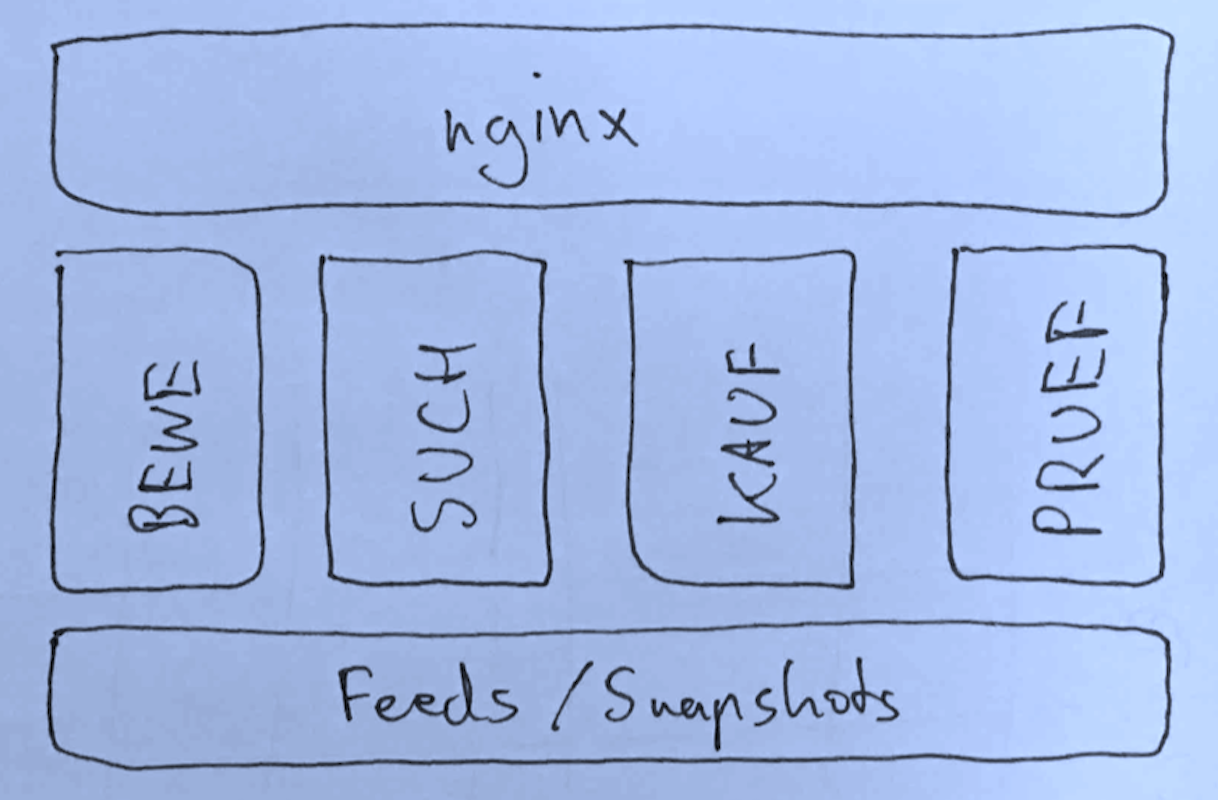 nginx
BEWE
SUCH
KAUF
PRUEF
Feeds / Snapshots